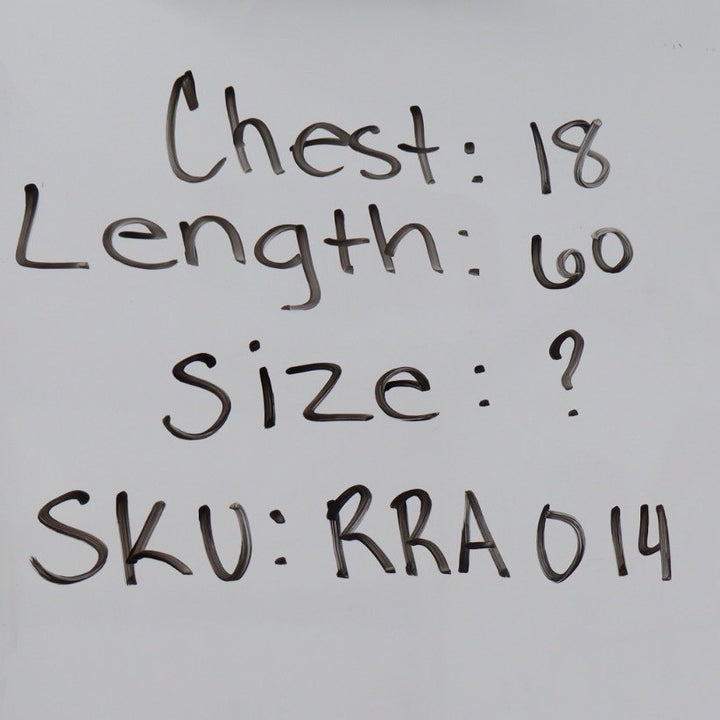 Chest: 18
Length: 60
Size: ?
SKU: RRA014